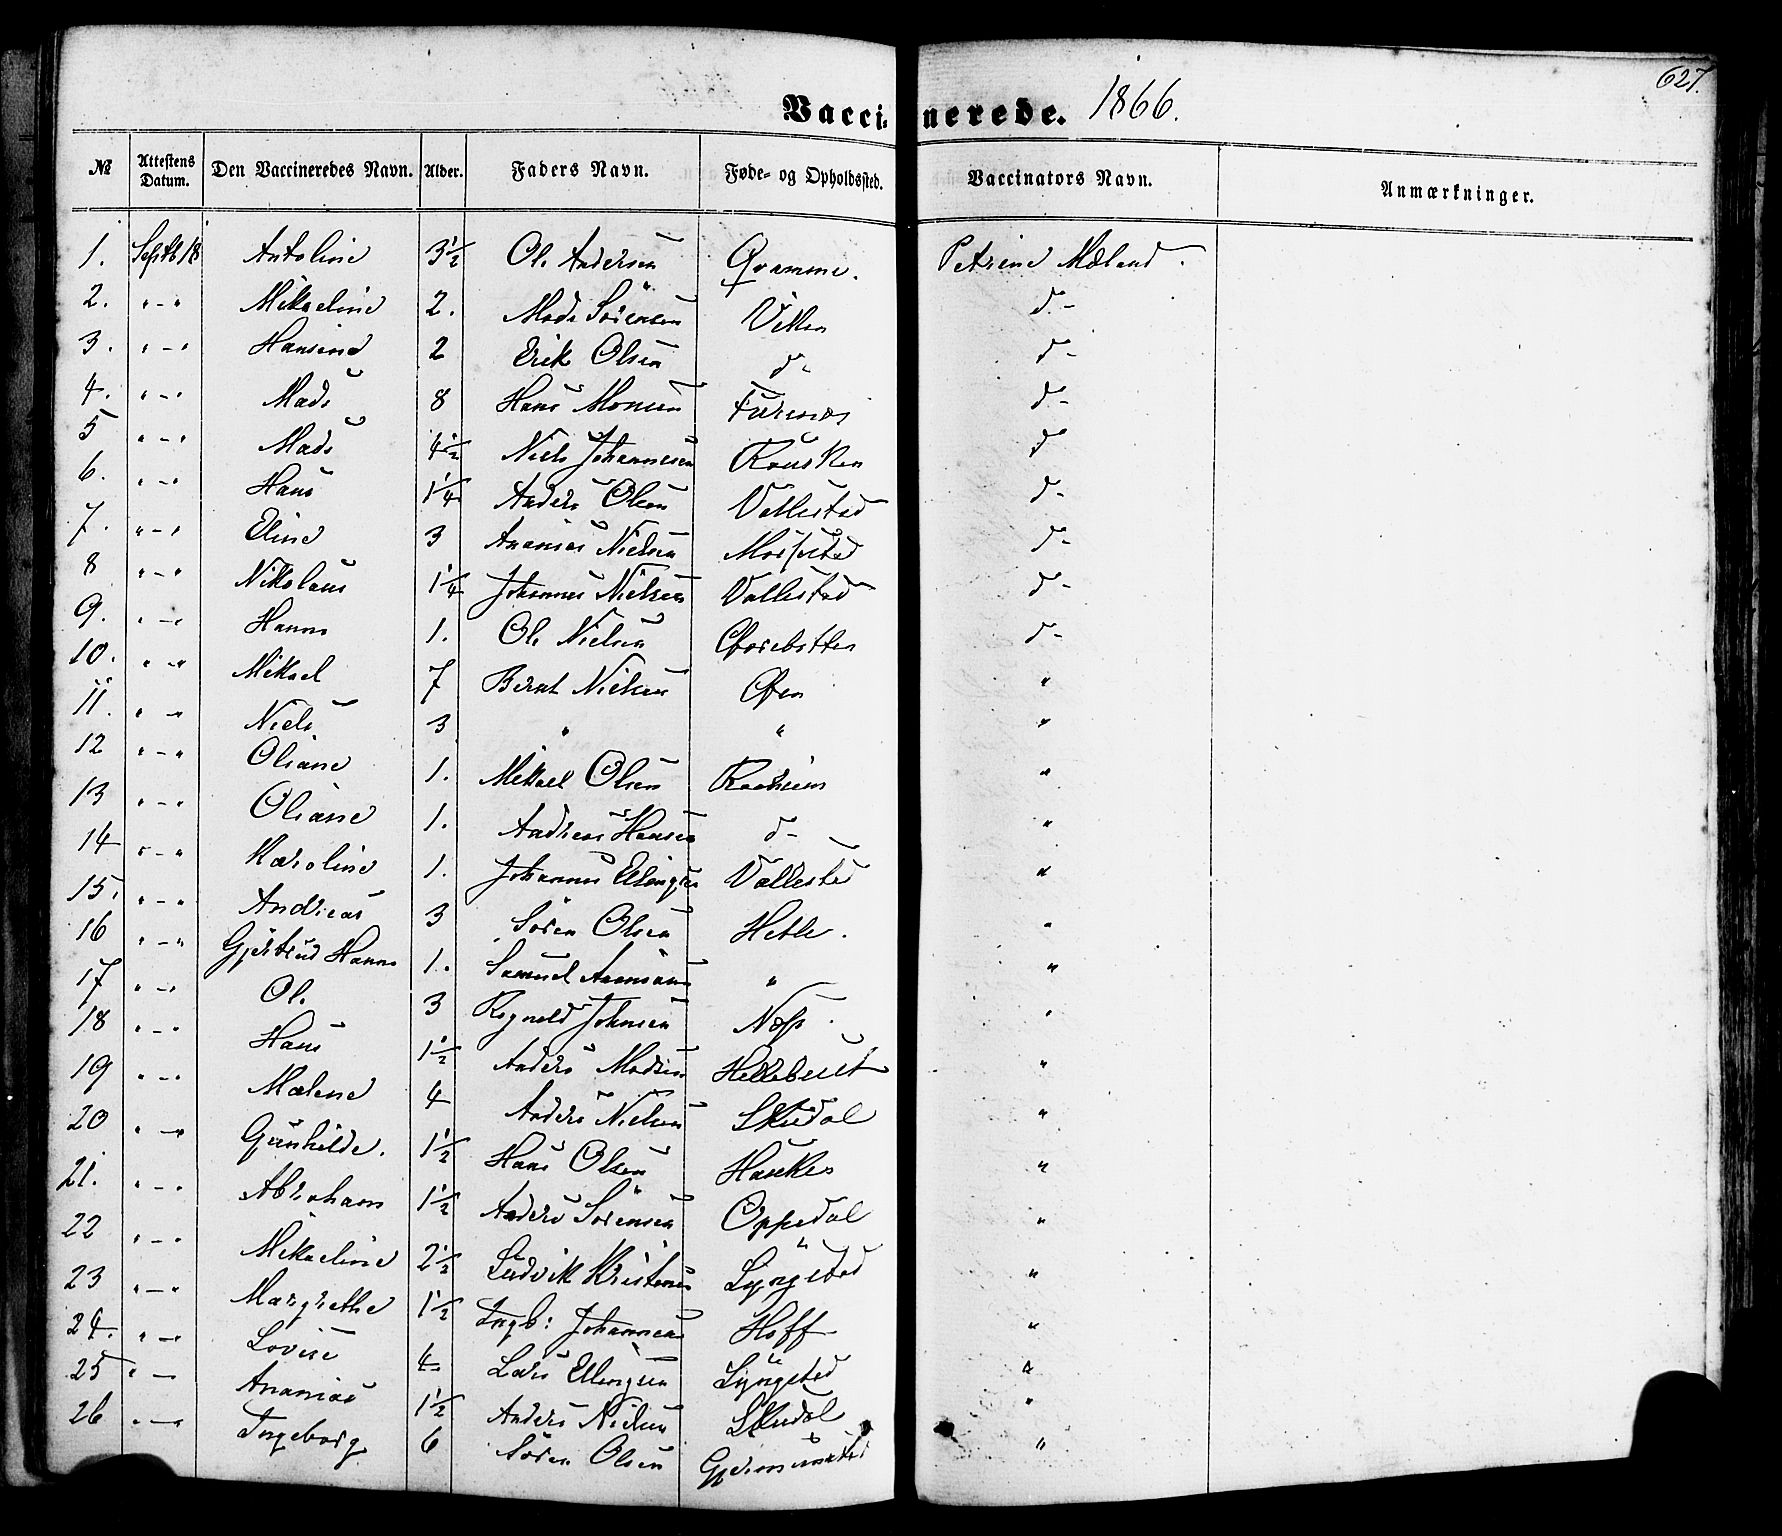 627.
Vaccinerede. 1866.
№ Attestens Datum. Den Vaccineredes Navn. Alder. Faders Navn. Føde- og Opholdssted. Vaccinators Navn. Anmærkninger.
1. Septb 18 Antoline 3½ Ole Andersen Qvamme. Petrine Mæland.
2. " - " Mikaeline 2. Mads Sörensen Viken d-
3. " - " Hansine 2 Erik Olsen d- d-
4. " - " Mads 8 Hans Monsen Furenes d-
5 " - " Mads 4½ Niels Johannesen Rousken d
6. " - " Hans 1¼ Anders Olsen Vallestad d-
7. " - " Eline 3 Ananias Nielsen d-
8 " - " Nikolaus 1¼ Johannes Nielsen Vallestad d-
9. " - " Hanna 1. Ole Nielsen d-
10. " - " Mikael 7 Bernt Nielsen "
11. " - " Niels 3 " " "
12 " - " Oliane 1. Mikael Olsen "
13 " - " Oliane 1. Andreas Hansen d- "
14 " - " Karoline 1. Johannes Ellingsen Vallestad "
15. " - " Andreas 3 Sören Olsen Hetle. "
16 " - " Gjertrud Hanna 1. Samuel " "
17 " - " Ole 3 Rognald Johnsen Næss. "
18 " - " Hans 1½ Anders Madsen Hellebust "
19 " - " Malene 4 Anders Nielsen Skudal "
20 " - " Gunhilde. 1½ Hans Olsen Haukes "
21. " - " Abraham 1½ Anders Sörensen Oppedal "
22 " - " Mikaeline 2½ Ludvik Kristensen Lyngstad "
23 " - " Margrethe 1½ Ingb: Johannesen Hoff "
24. " - " Lovise 4 Lars Ellingsen Lyngstad "
25 " - " Ananias 1½ Anders Nielsen Skudal "
26 " - " Ingeborg 6 Sören Olsen Gjelmunstad "